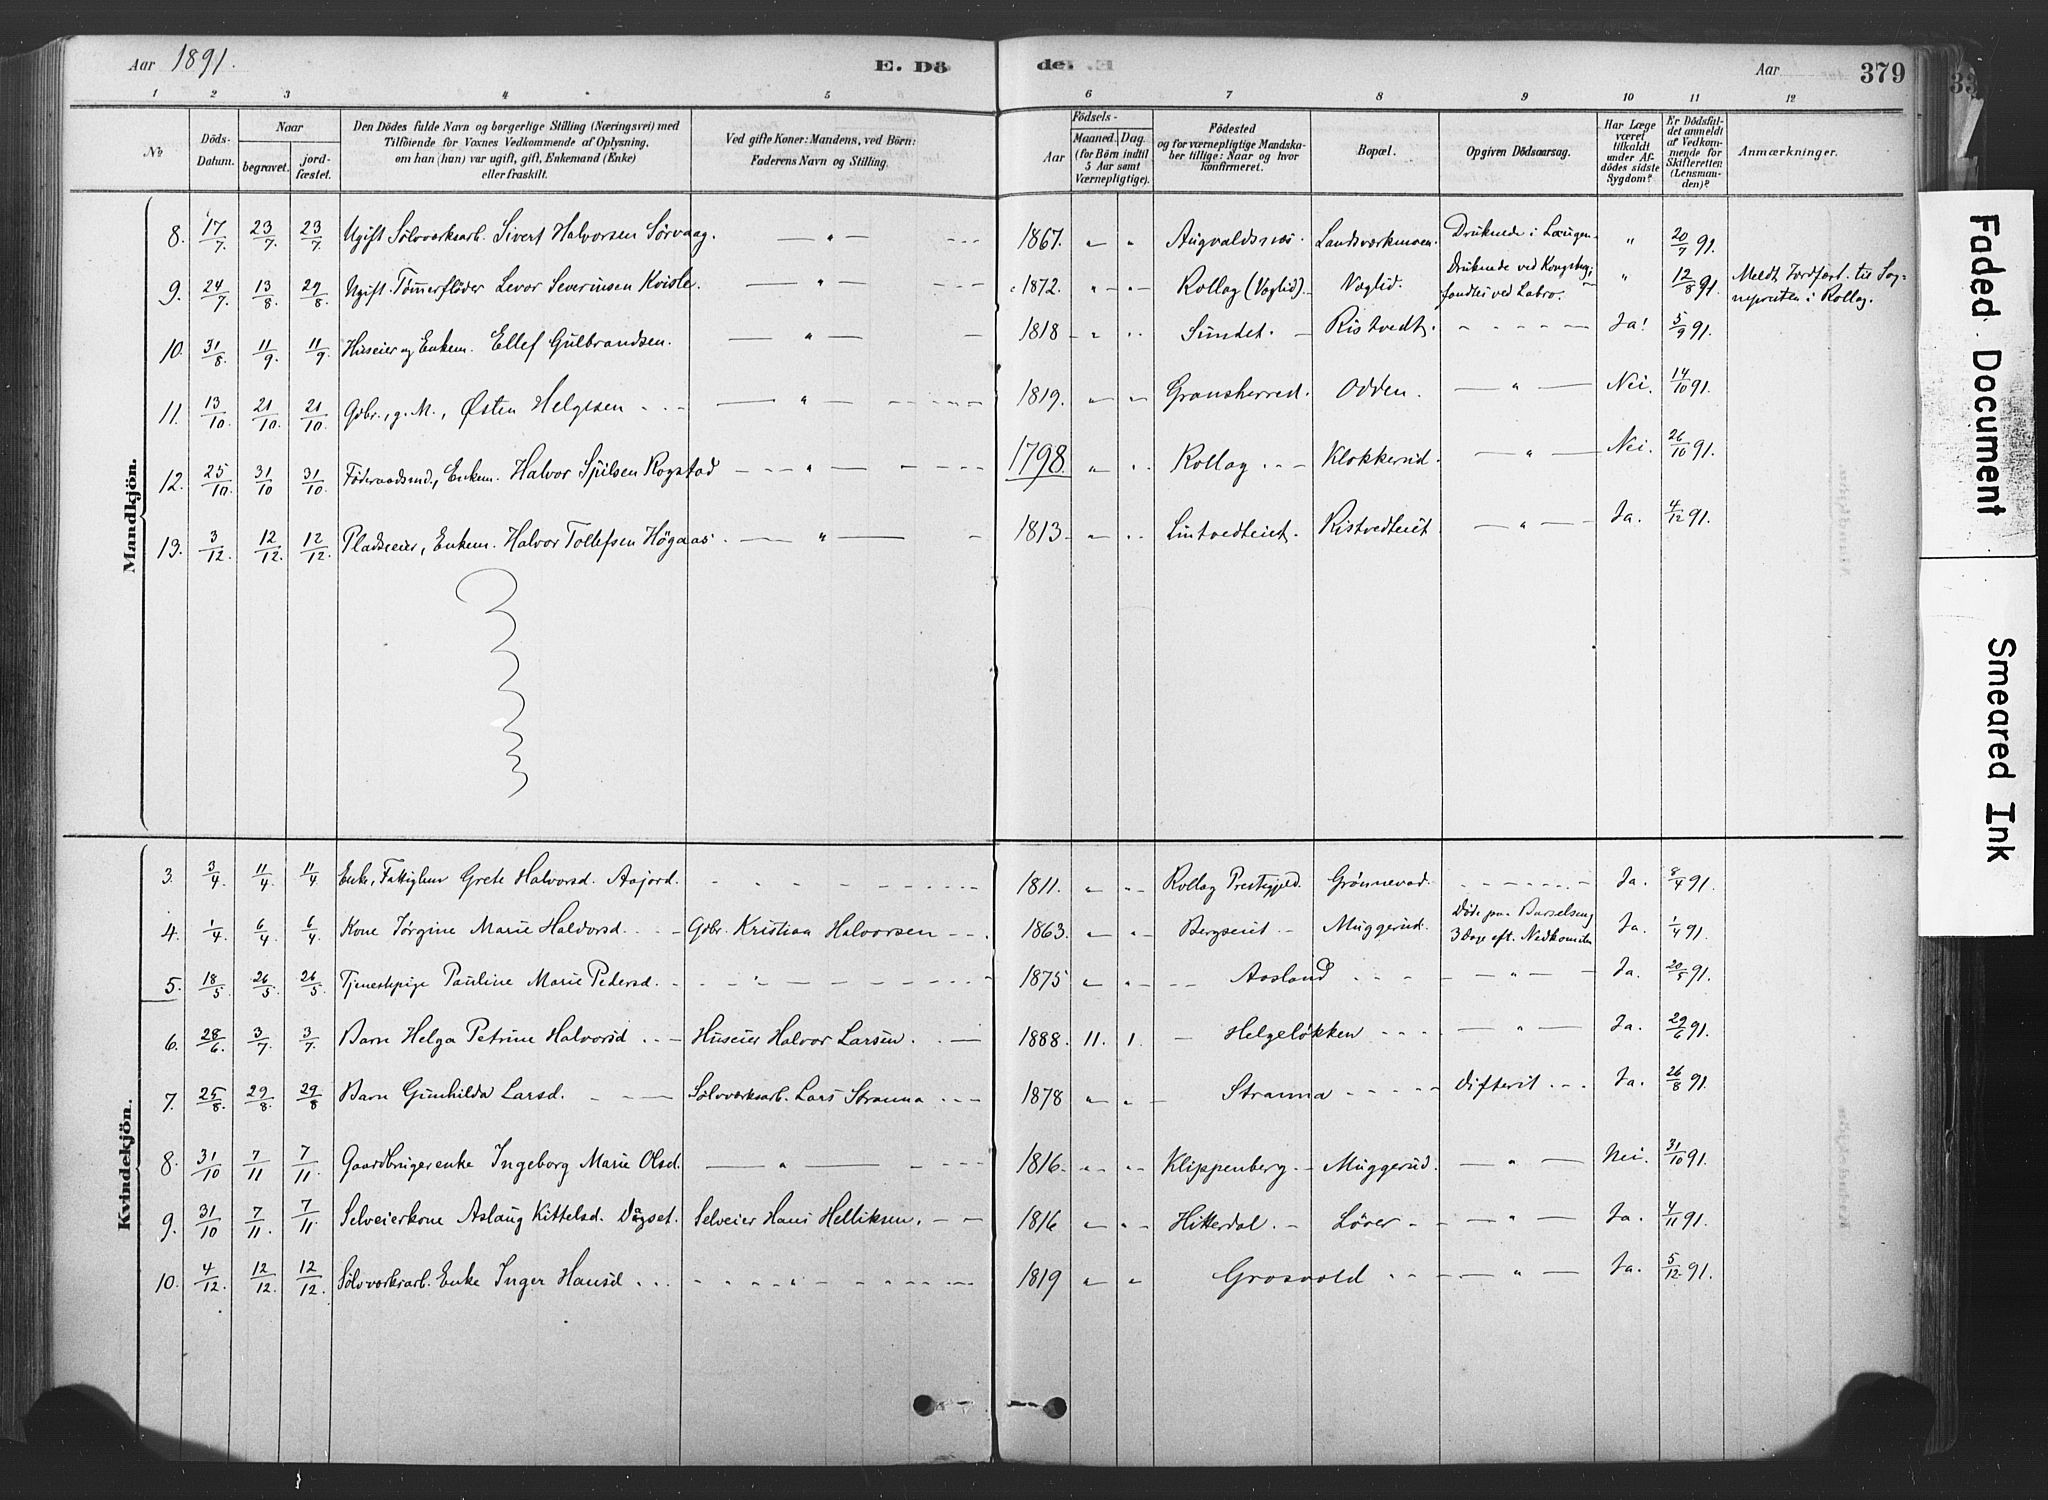 Aar 1891.
E. Dö
de. .E
Aar
379
1 2 3 4 5 6 7 8 9 10 11 12
№
Döds-Datum.
Naar
begravet.
jord-fæstet.
Den Dödes fulde Navn og borgerlige Stilling (Næringsvei) med
Tilföiende for Voxnes Vedkommende af Oplysning,
om han (hun) var ugift, gift, Enkemand (Enke)
eller fraskilt.
Ved gifte Koner: Mandens, ved Börn:
Faderens Navn og Stilling.
Födsels-
Aar
Maaned. Dag.
(for Börn indtil
5 Aar samt
Værnepligtige).
Födested
og for værnepligtige Mandska-
ber tillige: Naar og hvor
konfirmeret.
Bopæl.
Opgiven Dödsaarsag.
Har Læge
været
tilkaldt
under Af-
dödes sidste
Sygdom?
Er Dödsfal-
det anmeldt
af Vedkom-
mende for
Skifteretten
(Lensman-
den)?
Anmærkninger.
Mandkjön.
8. 17/7 23/7 23/7 Ugift Sølvverksarb. Sivert Halvorsen Sørvaag. — " — 1867. " " Augvaldsnæs Landsværkmoen. Druknede i Laugen. " 20/7 91.
9. 24/7 13/8 29/8 Ugift Tømmerfløder Levor Severinsen Kvisle. — " — 1872. " " Rollag (Væglid). Væglid. Druknede ved Kongsberg; fandtes ved Labro. " 12/8 91. Meldt Jordfæst. til Sog-
nepresten i Rollag.
10. 31/8 11/9 11/9 Huseier og Enkem. Ellef Gulbrandsen. — " — 1818 " " Sundet. Ristvedt. Ja! 5/9 91.
11. 13/10 21/10 21/10 Gdbr., g. M., Østen Helgesen — " — 1819. " " Gransherred. Odden. — " — Nei. 14/10 91.
12. 25/10 31/10 31/10 Føderaadsmd., Enkem. Halvor Spilsen Rogstad — " — 1798 " " Rollag Klokkerud. — " — Nei. 26/10 91.
13. 3/12 12/12 12/12 Pladseier, Enkem. Halvor Tollefsen Høgaas. — " — 1813. " " Lintvedteiet. Ristvedteiet — " — Ja. 4/12 91.
Kvindekjön.
3. 3/4 11/4 11/4 Enke, Fattiglem Grete Halvorsd. Aajord. 1811. " " Rollag Prestegjeld. Grønnevad. Ja. 8/4 91.
4. 1/4 6/4 6/4 Kone Jørgine Marie Haldorsd. Gdbr. Kristian Halvorsen 1863. " " Bergseiet Muggerud. Døde paa Barselseng 3 Dage eft. Nedkomsten Ja. 1/4 91.
5. 18/5 26/5 26/5 Tjenestepige Pauline Marie Pedersd. " 1875 " " Aasland — " — Ja. 20/5 91.
6. 28/6 3/7 3/7 Barn Helga Petrine Halvorsd Huseier Halvor Larsen. 1888. 11. 1. Helgeløkken — " — Ja. 29/6 91.
7. 25/8. 29/8. 29/8 Barn Gunhilda Larsd. Sølvværksarb. Lars Stranna 1878 " " Stranna Difterit Ja. 26/8 91.
8. 31/10 7/11 7/11 Gaardbrugerenke Ingeborg Marie Olsd. — " — 1816. " " Klippenberg Muggerud. — " — Nei. 31/10 91.
9. 31/10 7/11. 7/11. Selveierkone Aslaug Kittelsd. Dagset. Selveier Hans Helliksen. 1816 " " Hitterdal. Lører — " — Ja. 4/11 91.
10. 4/12. 12/12. 12/12. Sølvværksarb. Enke Inger Hansd " 1819 " " Grosvold — " — Ja. 5/12 91.
Faded Document
Smeared Ink